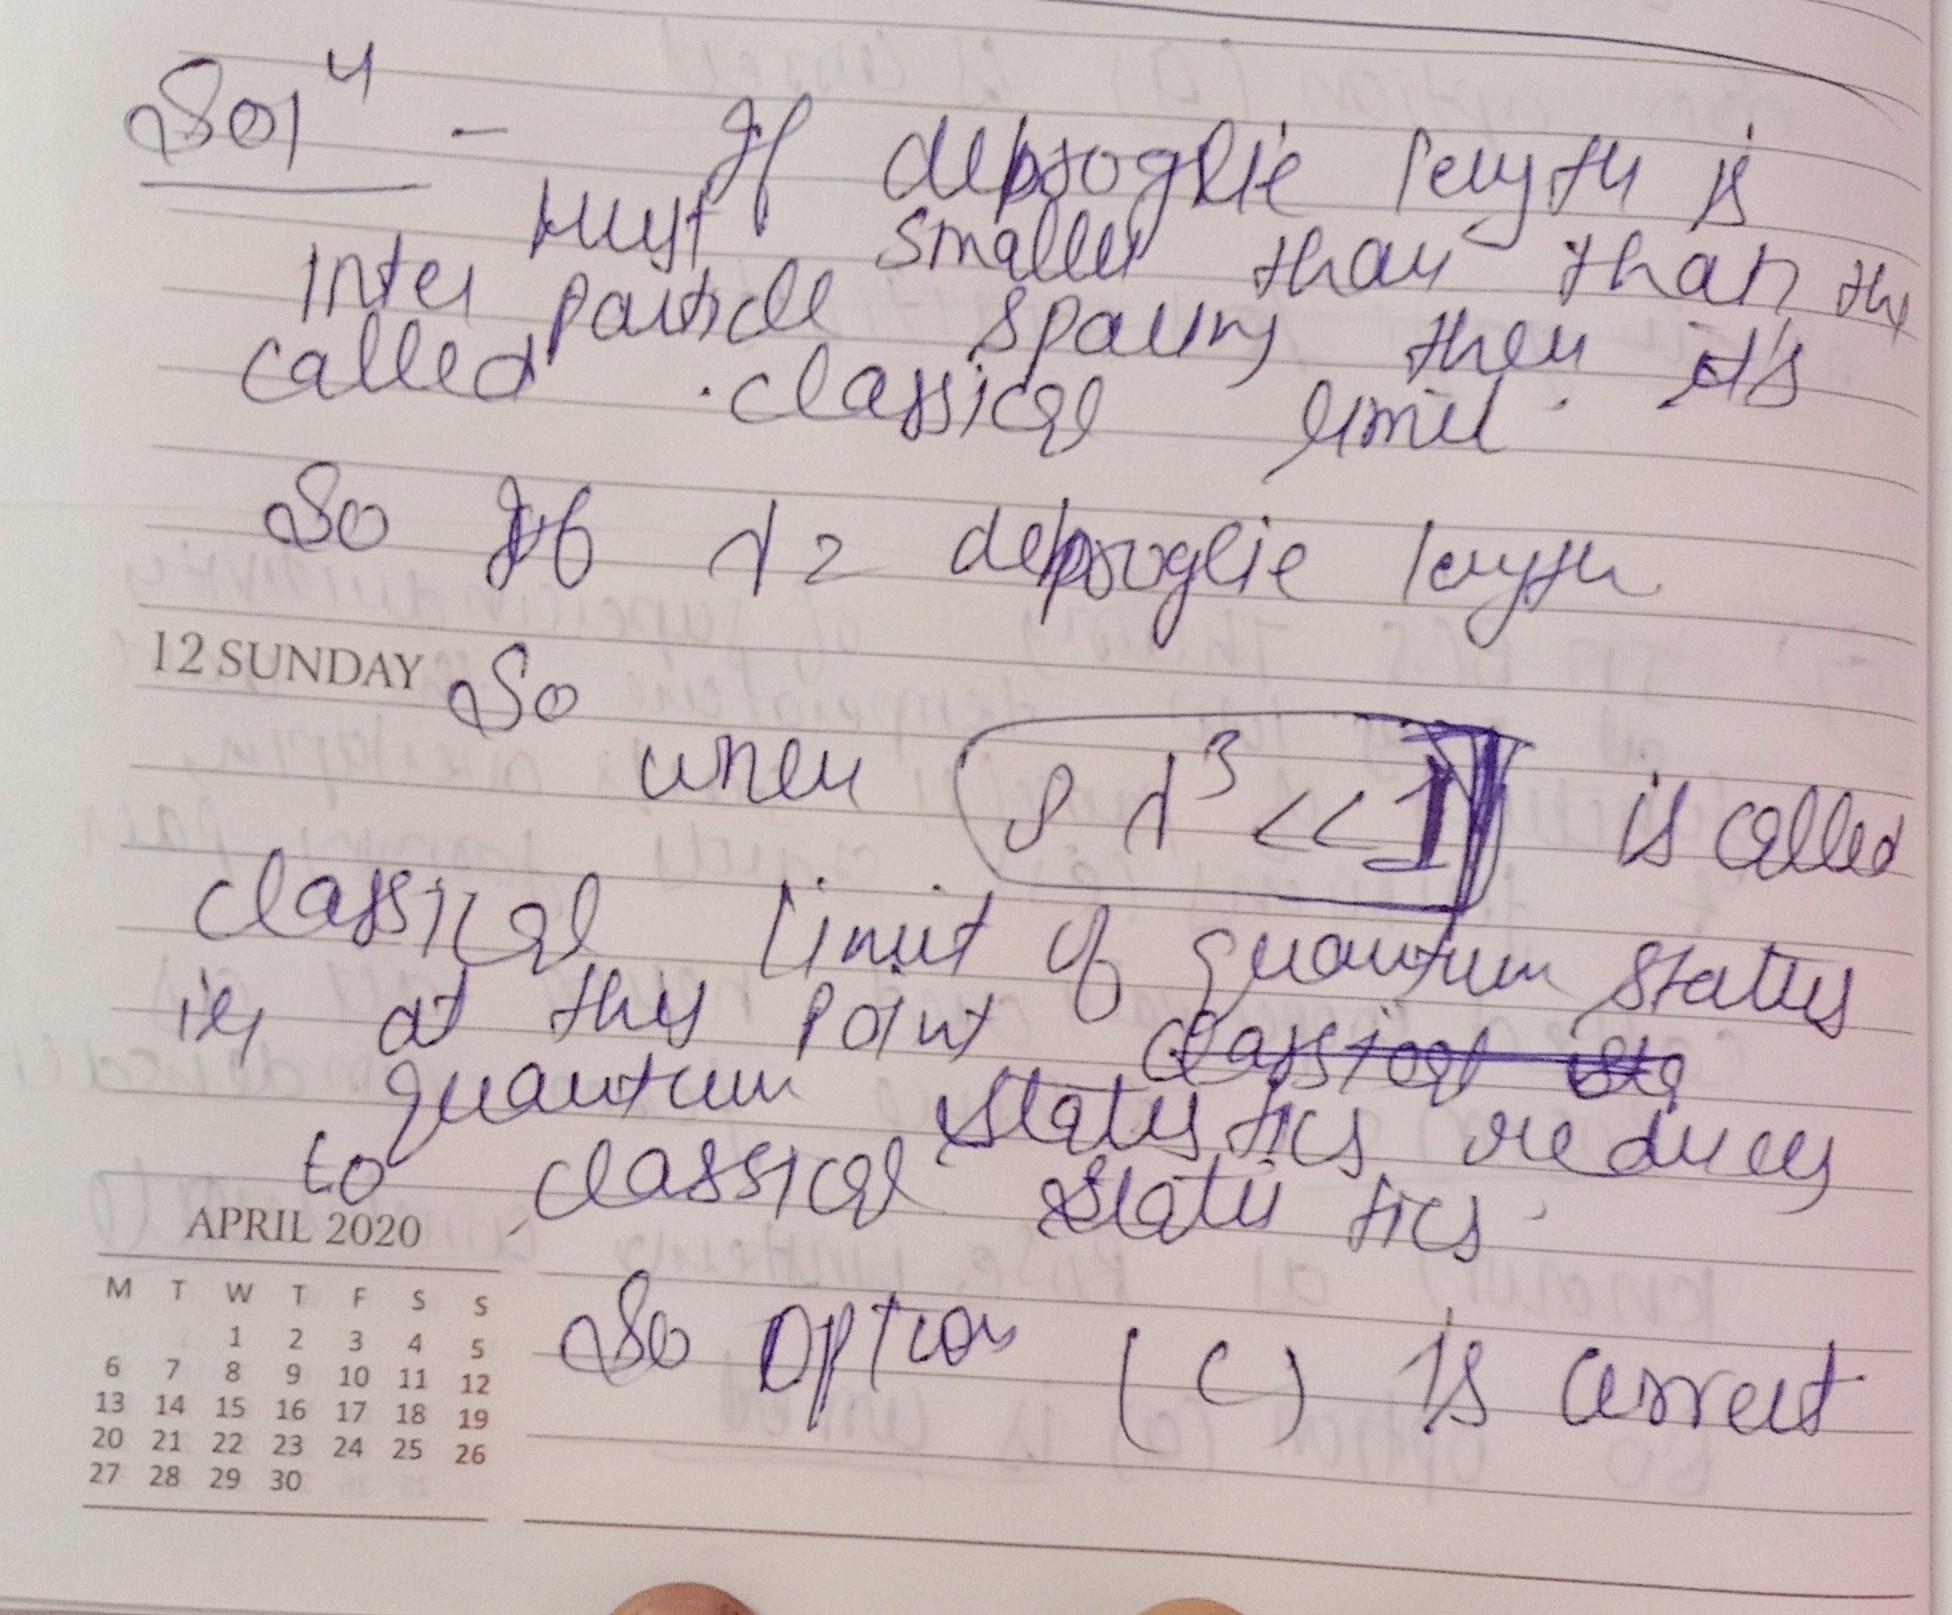 Solⁿ - If debroglie length is
must smaller than than the
inter particle spacing then it's
called classical limit.
So If λ = debroglie length
12 SUNDAY So
when ρ λ³ << 1 is called
classical limit of quantum status
ie, at this point classical sta
quantum statistics reduces
to classical statistics.
APRIL 2020
M T W T F S S
1 2 3 4 5
6 7 8 9 10 11 12
13 14 15 16 17 18 19
20 21 22 23 24 25 26
27 28 29 30
So option (c) is correct